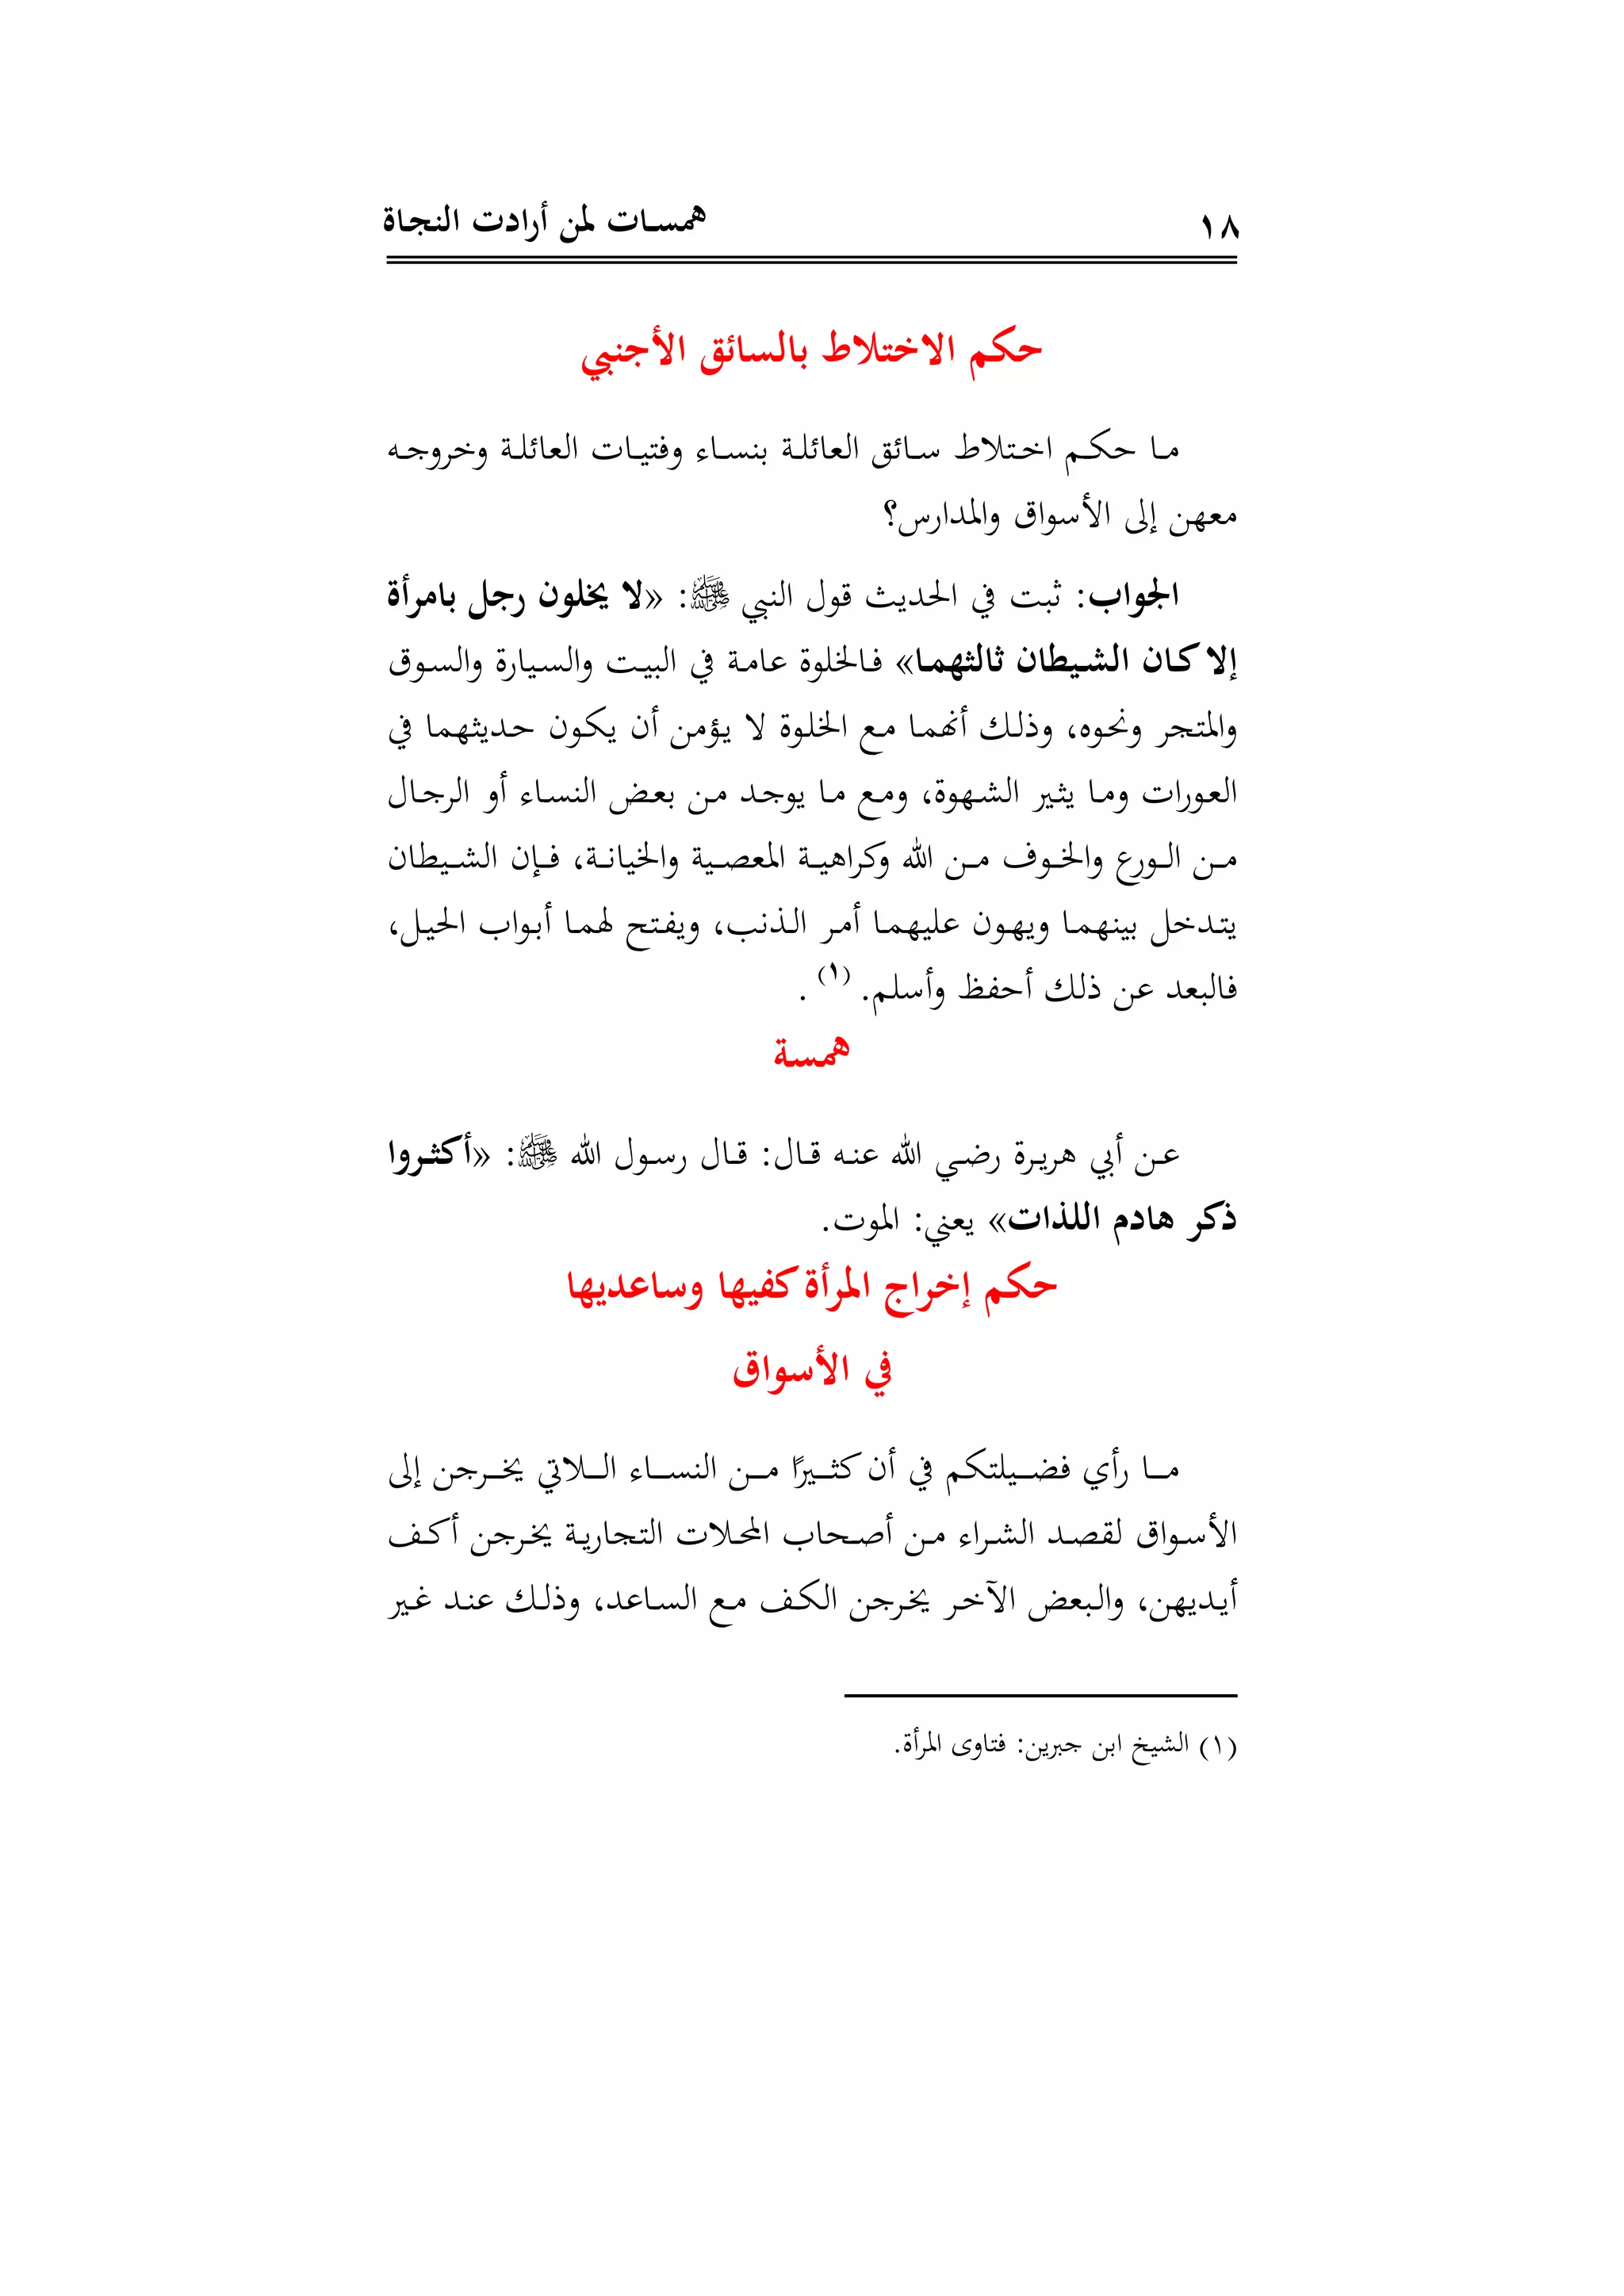 ١٨ همسات لمن أرادت النجاة
حكم الاختلاط بالسائق الأجنبي
ما حكم اختلاط سائق العائلة بنساء وفتيات العائلة وخروجه
معهن إلى الأسواق والمدارس؟
الجواب: ثبت في الحديث قول النبي ﷺ: «لا يخلون رجل بامرأة
إلا كان الشيطان ثالثهما» فالخلوة عامة في البيت والسيارة والسوق
والمتجر ونحوه، وذلك أنهما مع الخلوة لا يؤمن أن يكون حديثهما في
العورات وما يثير الشهوة، ومع ما يوجد من بعض النساء أو الرجال
من الورع والخوف من الله وكراهية المعصية والخيانة، فإن الشيطان
يتدخل بينهما ويهون عليهما أمر الذنب، ويفتح لهما أبواب الحيل،
فالبعد عن ذلك أحفظ وأسلم. (١) .
همسة
عن أبي هريرة رضي الله عنه قال: قال رسول الله ﷺ: «أكثروا
ذكر هادم اللذات» يعني: الموت.
حكم إخراج المرأة كفيها وساعديها
في الأسواق
ما رأي فضيلتكم في أن كثيرًا من النساء اللاتي يخرجن إلى
الأسواق لقصد الشراء من أصحاب المحلات التجارية يخرجن أكف
أيديهن، والبعض الآخر يخرجن الكف مع الساعد، وذلك عند غير
(١) الشيخ ابن جبرين: فتاوى المرأة.